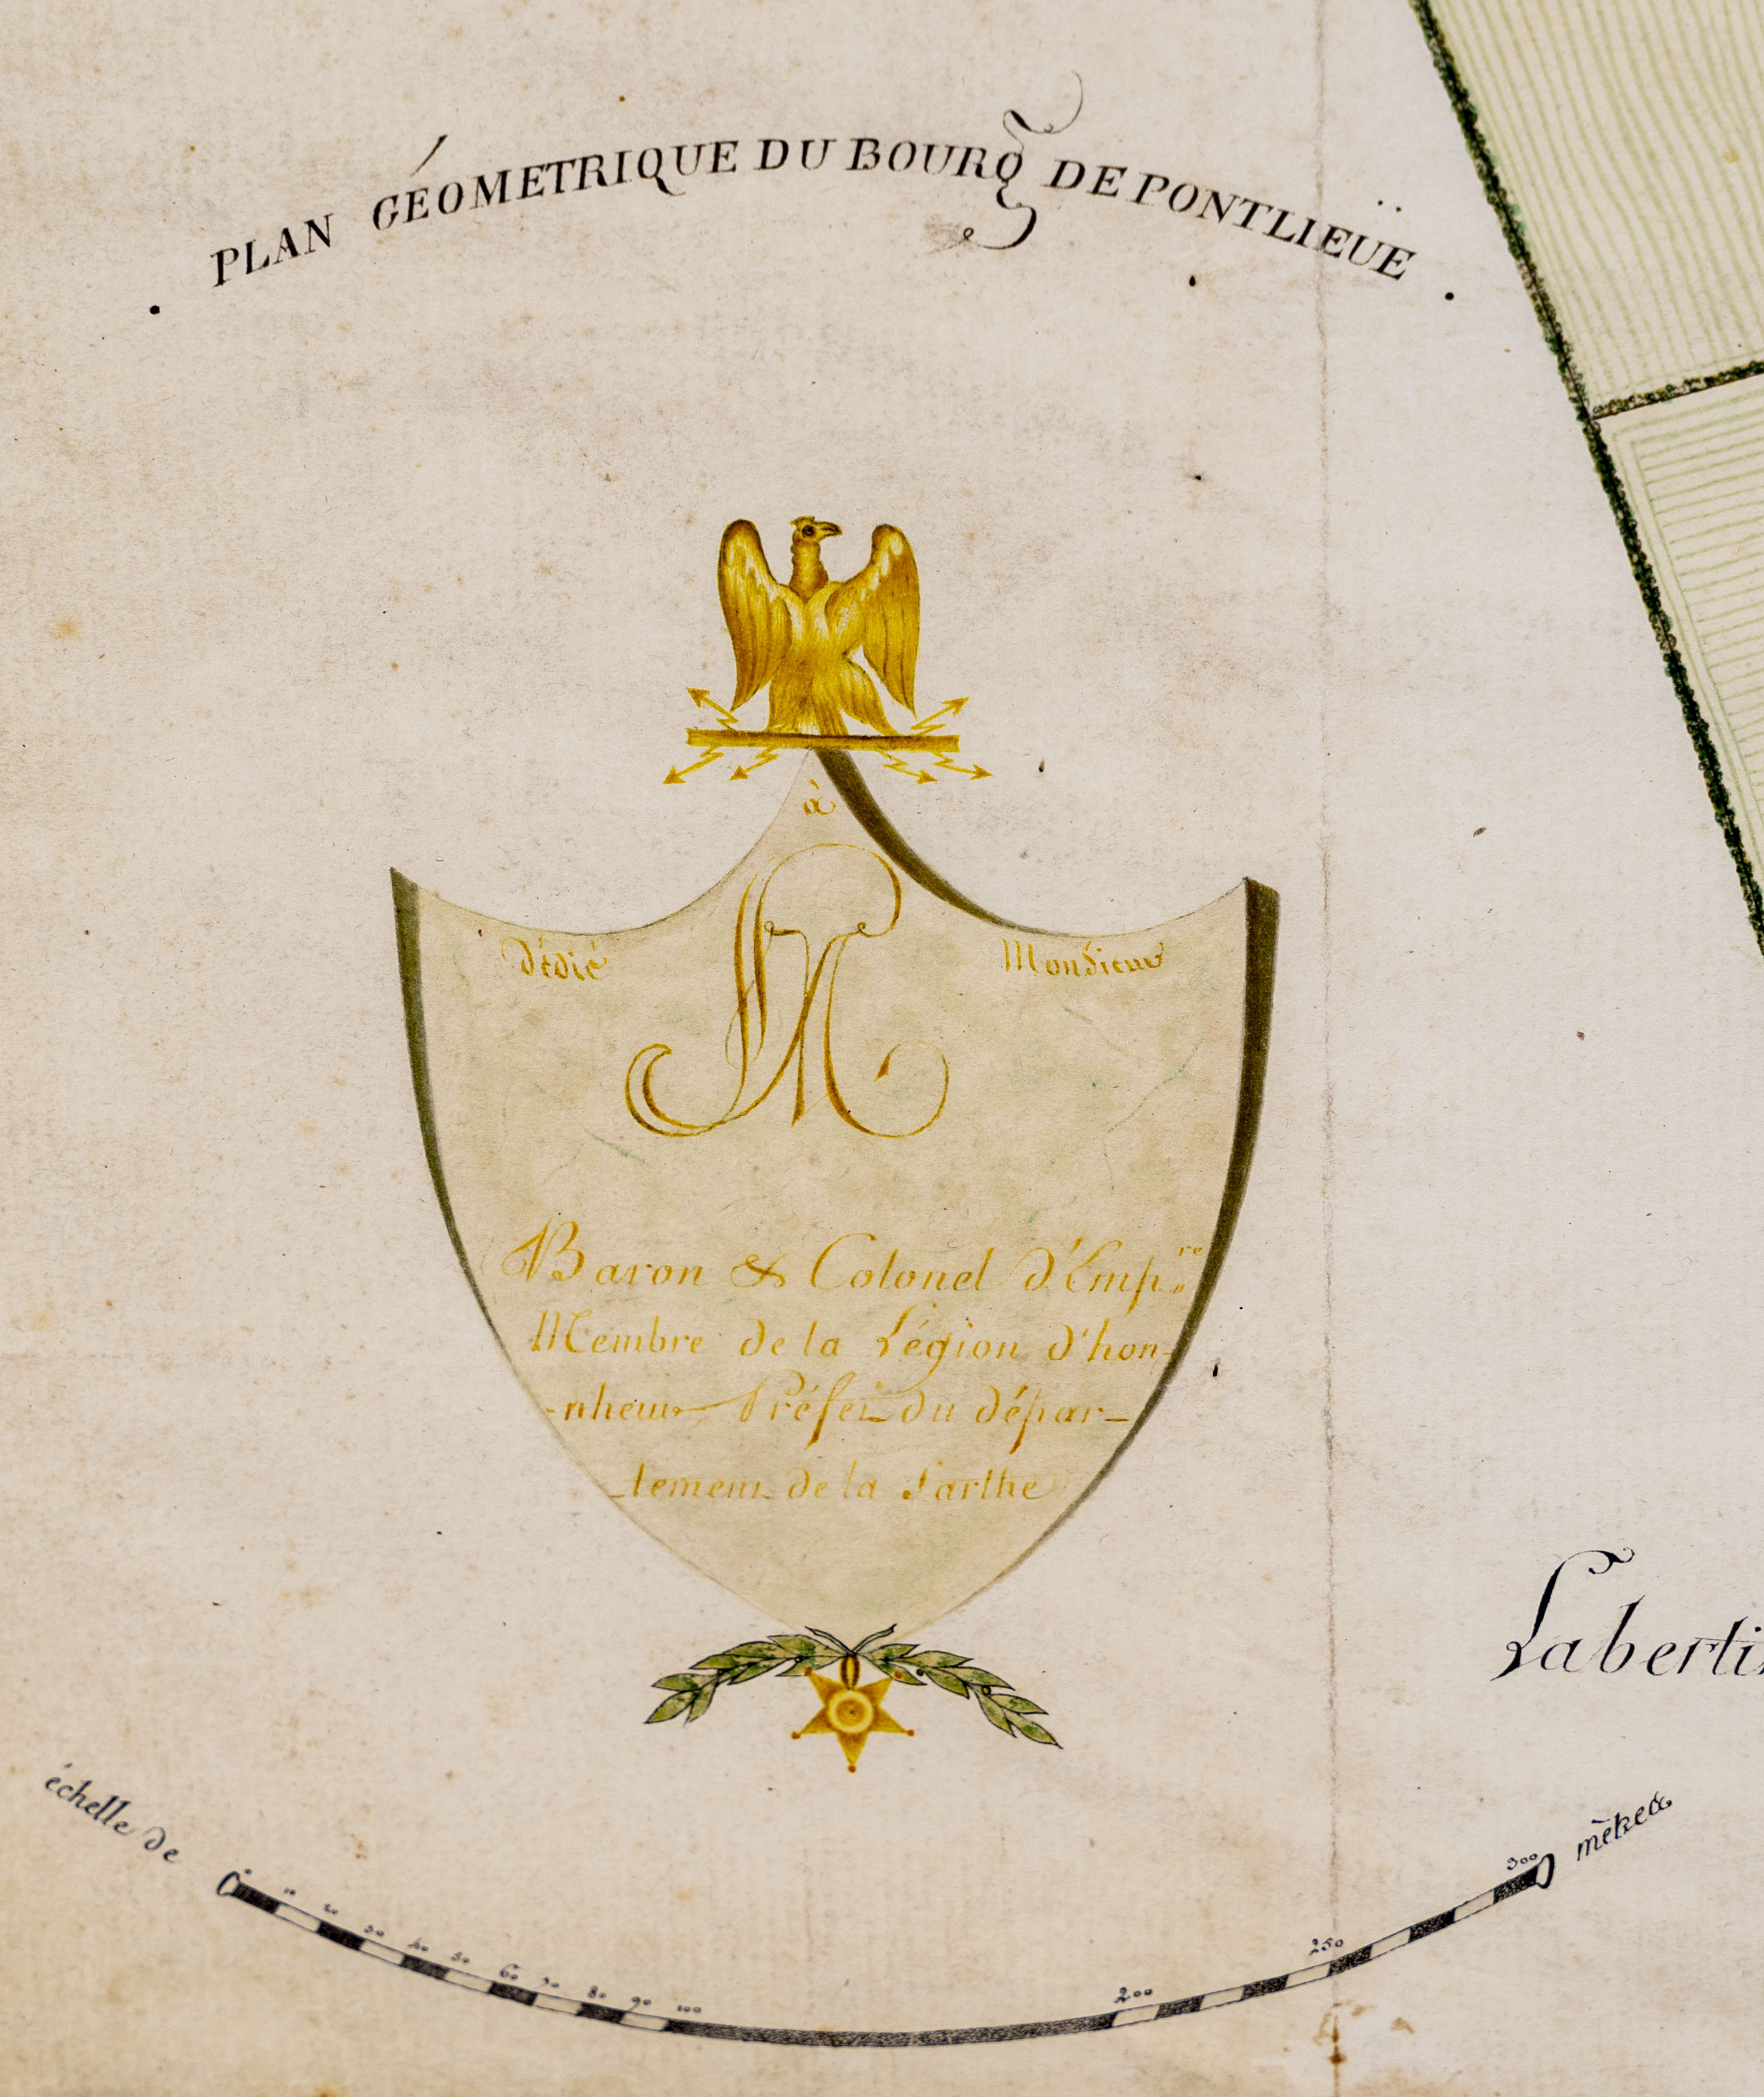 . PLAN GÉOMETRIQUE DU BOURG DE PONTLIEÜE .
à
Dédié Monsieur
Baron & Colonel d'Emp.re
Membre de la Légion d'hon-
-nheur Préfet du dépar-
-tement de la Sarthe
Laberti
échelle de mètres
0 10 20 30 40 50 60 70 80 90 100 200 250 300